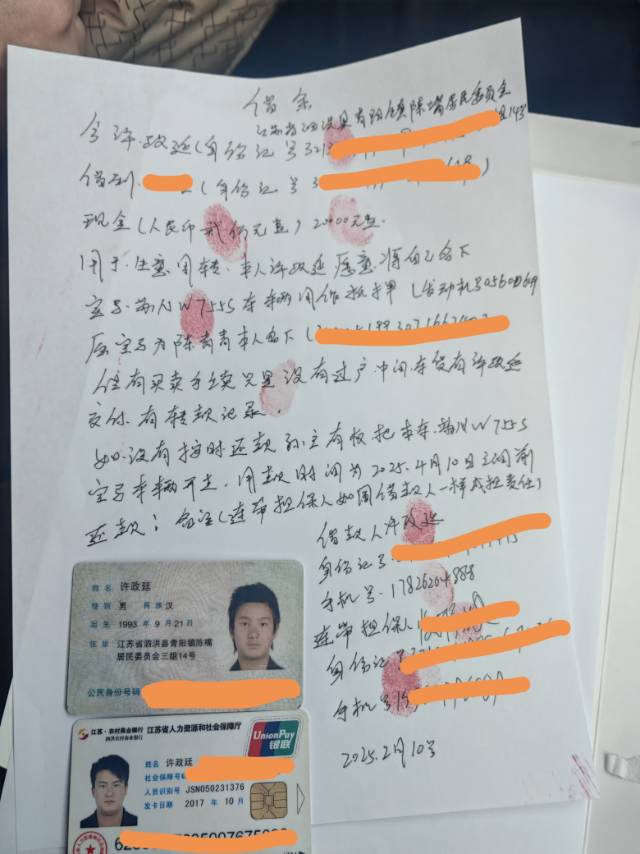 借条
江苏省泗洪县青阳镇陈嘴居民委员会
今许政廷(身份证号3213
借到 (身份证号3
现金(人民币贰仟元直)20000元直.
用于.生意.周转.本人许政廷愿意.将自己名下
宝马.苏NW755S车辆用作抵押(发动机号
原宝马为陈青青本人名下(
但有买卖手续只是没有过户中间.车贷有许政廷
支付.有转款记录.
如没有按时还款 有权把本车.苏NW755S
宝马车辆开走.用款时间为2025.4月10日之间前
还款; 备注(连带担保人如同借款人一样承担责任)
借款人许政廷
身份证号
手机号.17826204888
连带担保人
身份证
手机号
2025.2月10号
姓名 许政廷
性别 男 民族 汉
出生 1993年9月21日
住址 江苏省泗洪县青阳镇陈嘴
居民委员会三组14号
公民身份号码
江苏·农村商业银行 江苏省人力资源和社会保障厅
泗洪农村商业银行
UnionPay
银联
姓名 许政廷
社会保障号
人员识别号 JSN050231376
发卡日期 2017年10月